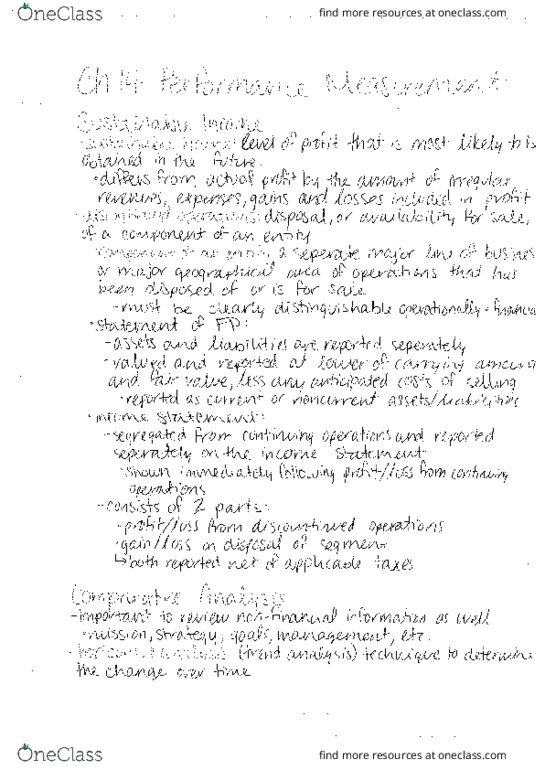 OneClass
find more resources at oneclass.com
Ch 14 Performance Measurement
Sustainable Income
-sustainable income: level of profit that is most likely to be
obtained in the future.
•differs from actual profit by the amount of irregular
revenues, expenses, gains and losses included in profit
-discontinued operations: disposal, or availability for sale,
of a component of an entity
component of an entity: a seperate major line of busines
or major geographical area of operations that has
been disposed of or is for sale
-must be clearly distinguishable operationally + financia
•statement of FP:
-assets and liabilities are reported seperately
-valued and reported at lower of carrying amount
and fair value, less any anticipated costs of selling
•reported as current or noncurrent assets/liabilities
•income statement:
-segregated from continuing operations and reported
seperately on the income statement
•shown immediately following profit/loss from continuing
operations
-consists of 2 parts:
•profit/loss from discontinued operations
•gain/loss on disposal of segment
↳both reported net of applicable taxes
Comparative Analysis
-important to review non-financial information as well
•mission, strategy, goals, management, etc.
-horizontal analysis: (trend analysis) technique to determine
the change over time
OneClass
find more resources at oneclass.com